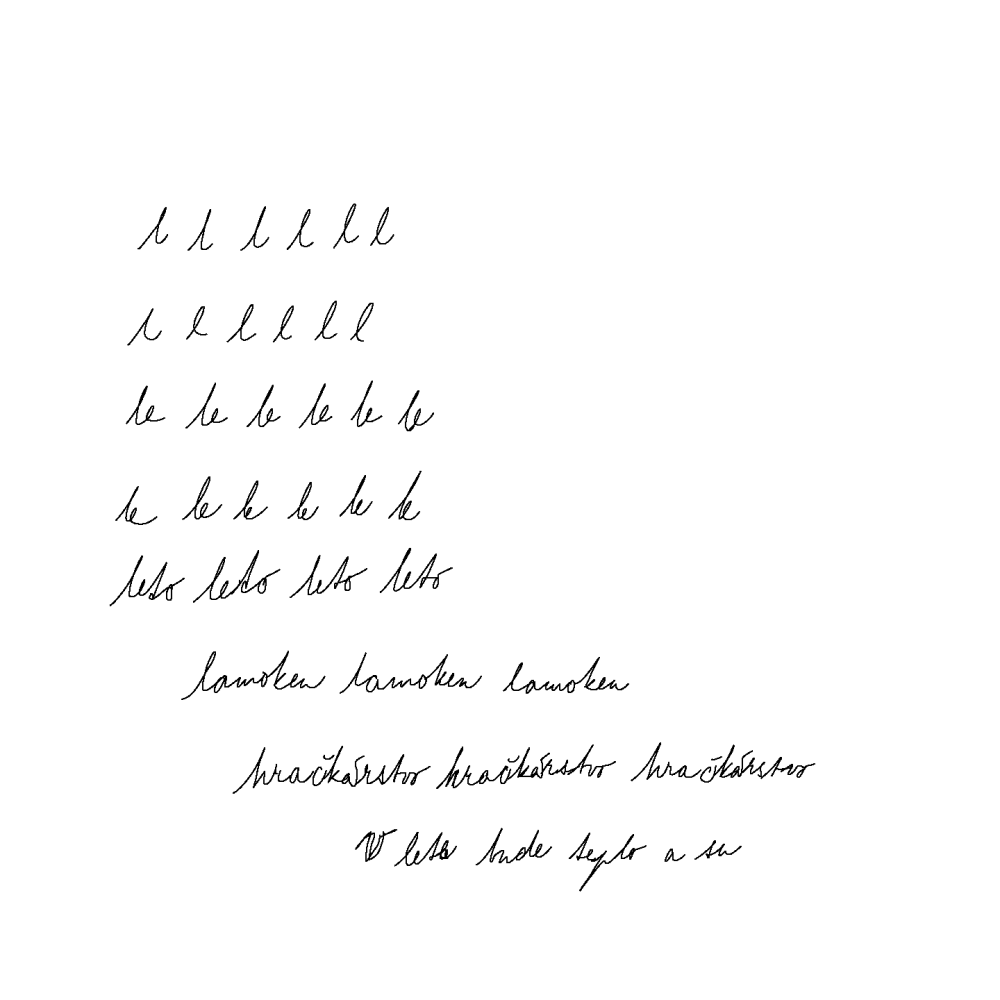 l l l l l l
l l l l l l
le le le le le le
le le le le le le
leto leto leto leto
lamoken lamoken lamoken
hračkárstvo hračkárstvo hračkárstvo
V lete bude teplo a su